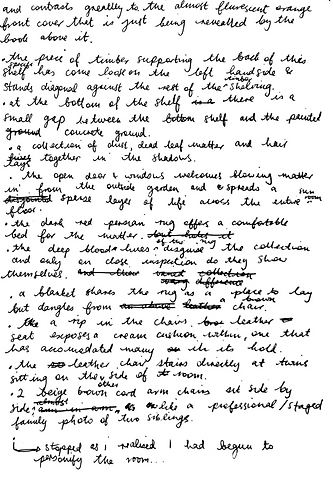 and contrasts greatly to the almost flurescent orange
front cover that is just being revealled by the
book above it.
• the piece of timber supporting the back of this
shelf has come loose on the left handside &
stands diagonal against the rest of the timber shelving.
• at the bottom of the shelf is a there is a
small gap between the bottom shelf and the painted
ground concrete ground.
• a collection of dust, dead leaf matter and hair
lays together in the shadows.
• the open door & windows welcomes blowing matter
in from the outside garden and & spreads a
sparse layer of life across the entire room
floor.
• the dark red persian rug offers a comfortable
bed for the matter.
• the deep blood hues of the rug disguise the collection
and only on close inspection do they show
themselves.
• a blanket shares the rug as a place to lay
but dangles from a brown chair.
• a rip in the chairs leather
seat exposes a cream cushion within, one that
has accomodated many on it its hold.
• the leather chair stains directly at twins
sitting on the other side of room.
• 2 beige brown cord arm chairs sit side by
side almost like a professional/staged
family photo of two siblings.
stopped as i realised i had begun to
personify the room...